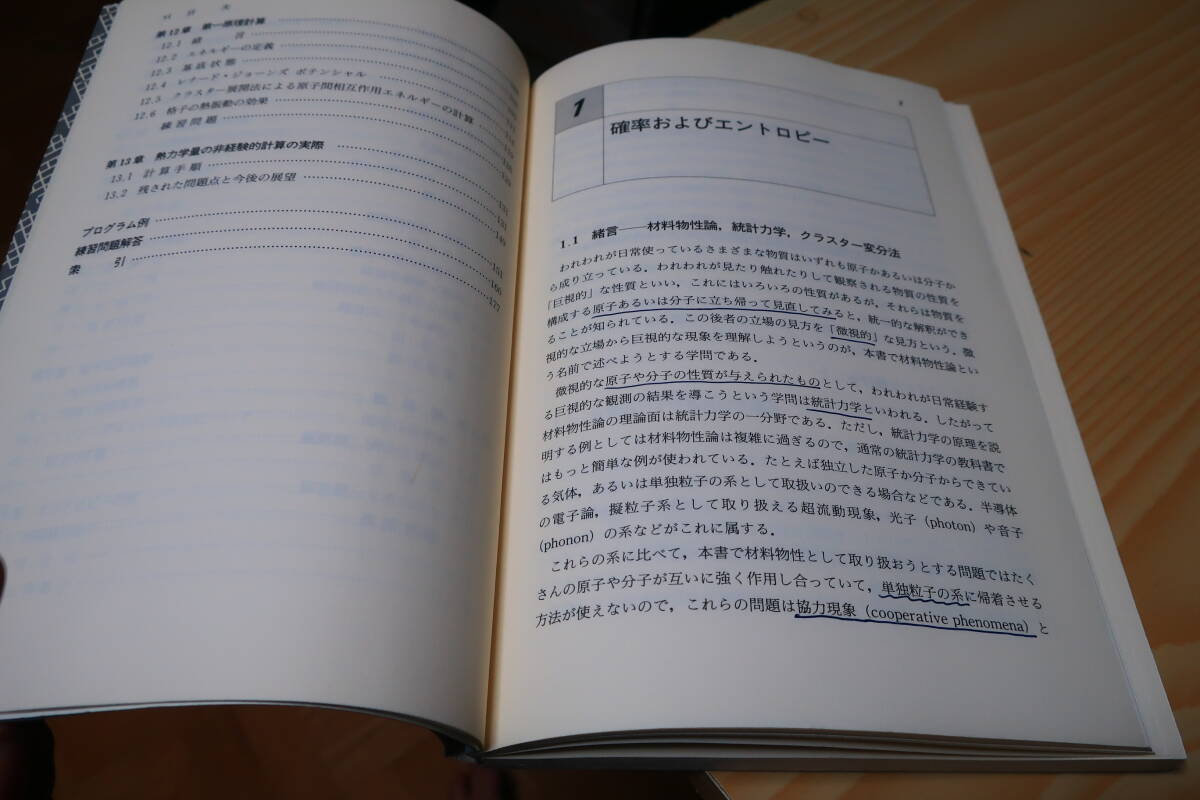 vi 目 次
第12章 第一原理計算
12.1 緒 言
12.2 エネルギーの定義
12.3 基底状態
12.4 レナード・ジョーンズ ポテンシャル
12.5 クラスター展開法による原子間相互作用エネルギーの計算
12.6 格子の熱振動の効果
練習問題
第13章 熱力学量の非経験的計算の実際
13.1 計算手順
13.2 残された問題点と今後の展望
プログラム例 151
練習問題解答 160
索 引 177
1
確率およびエントロピー
1.1 緒言――材料物性論,統計力学,クラスター変分法
われわれが日常使っているさまざまな物質はいずれも原子かあるいは分子か
ら成り立っている.われわれが見たり触れたりして観察される物質の性質を
「巨視的」な性質といい,これにはいろいろの性質があるが,それらは物質を
構成する原子あるいは分子に立ち帰って見直してみると,統一的な解釈ができ
ることが知られている.この後者の立場の見方を「微視的」な見方という.微
視的な立場から巨視的な現象を理解しようというのが,本書で材料物性論とい
う名前で述べようとする学問である.
微視的な原子や分子の性質が与えられたものとして,われわれが日常経験す
る巨視的な観測の結果を導こうという学問は統計力学といわれる.したがって
材料物性論の理論面は統計力学の一分野である.ただし,統計力学の原理を説
明する例としては材料物性論は複雑に過ぎるので,通常の統計力学の教科書で
はもっと簡単な例が使われている.たとえば独立した原子か分子からできてい
る気体,あるいは単独粒子の系として取扱いのできる場合などである.半導体
の電子論,擬粒子系として取り扱える超流動現象,光子(photon)や音子
(phonon)の系などがこれに属する.
これらの系に比べて,本書で材料物性として取り扱おうとする問題ではたく
さんの原子や分子が互いに強く作用し合っていて,単独粒子の系に帰着させる
方法が使えないので,これらの問題は協力現象(cooperative phenomena)と